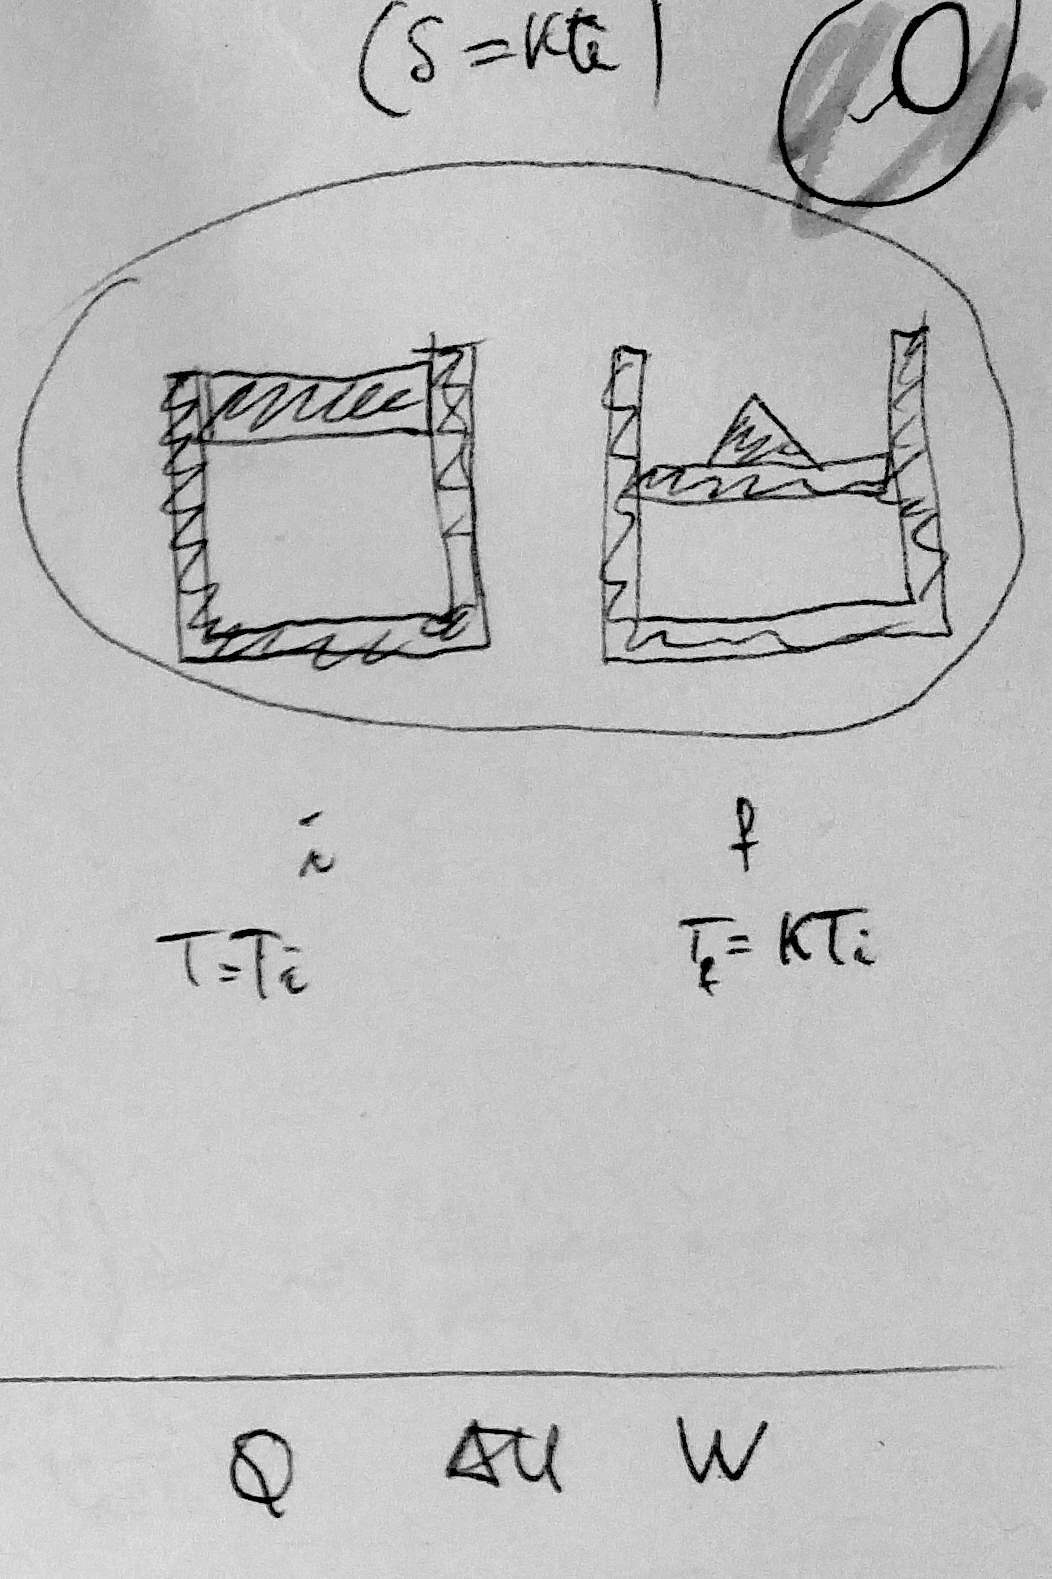 (S = Kti)
i f
T = Ti Tf = KTi
Q ΔU W